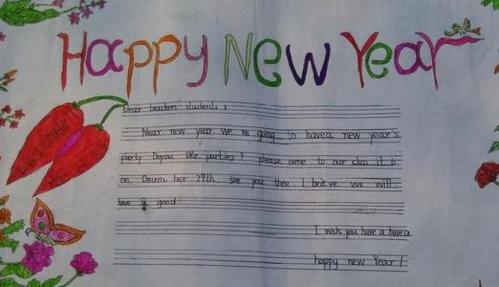 Happy New Year
Dear teachers students :
Near new year we're going to havea new year's
party Doyou like parties? please come to our class it is
on Decem ber 29th. see you then. I beieve we will
have a good
I wish you have a havea
happy new Year!